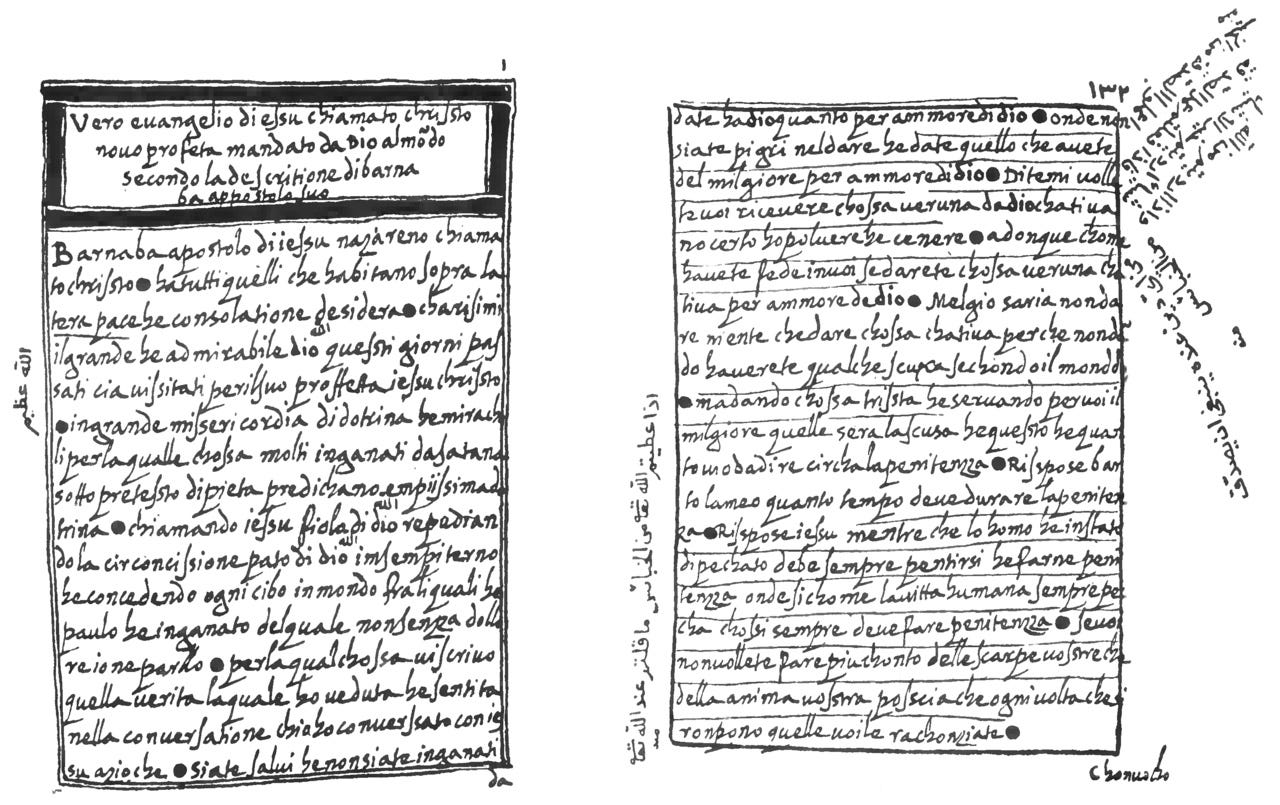 ١
Vero euangelio di essu chiamato chrissto
nouo profeta mandato da Dio al mõdo
secondo la descritione di barna
ba appostolo suo
Barnaba apostolo di iessu nazareno chiama
to chrissto ● ha tutti quelli che habitano sopra la
tera pace he consolatione desidera ● charisimi
il grande he admirabile dio quessti giorni pas
sati cia uissitati per il suo proffetta iessu chrissto
● in grande missericordia di dotrina he mirach
li per la qualle chossa molti inganati da satana
sotto pretessto di pieta predichano empiissima do
trina ● chiamando iessu fiolo di dio repedian
do la circoncissione pato di dio in sempiterno
he concedendo ogni cibo inmondo fra li quali he
paulo he inganato del quale non senza dollo
re io ne parllo ● per la qual chossa ui scriuo
quella uerita la quale ho ueduta he sentita
nella conuerssatione chio ho conuerssato con ie
su azio che ● siate salui he non siate inganati
da
الله عظيم
الله
الله
الله
١٣٢
date ha dio quanto per ammore di dio ● onde non
siate pigri nel dare he date quello che auete
del milgiore per ammore di dio ● Ditemi volle
te uoi riceuere chossa ueruna da dio chatiua
no certo ho poluere he cenere ● adonque chome
hauete fede in uoi se darete chossa ueruna cha
tiua per ammore de dio ● Melgio saria non da
re niente che dare chossa chatiua perche non dã
do hauerete qualche scuxa sechondo il mondo
● ma dando chossa trissta he seruando per uoi il
milgiore quelle sera la scusa he quessto he quan
to uo da dire circha la penitenza ● Risspose bar
tolameo quanto tempo deue durare la peniten
za ● Risspose iessu mentre che lo homo he in stato
di pechato debe sempre pentirsi he farne peni
tenza onde sichome la uitta humana sempre pe
cha chossi sempre deue fare penitenza ● se uoi
non uollete fare piu chonto delle scarpe uosstre che
della anima uosstra possciache ogni uolta che si
ronpono quelle uoi le rachonziate ●
Chonuocho